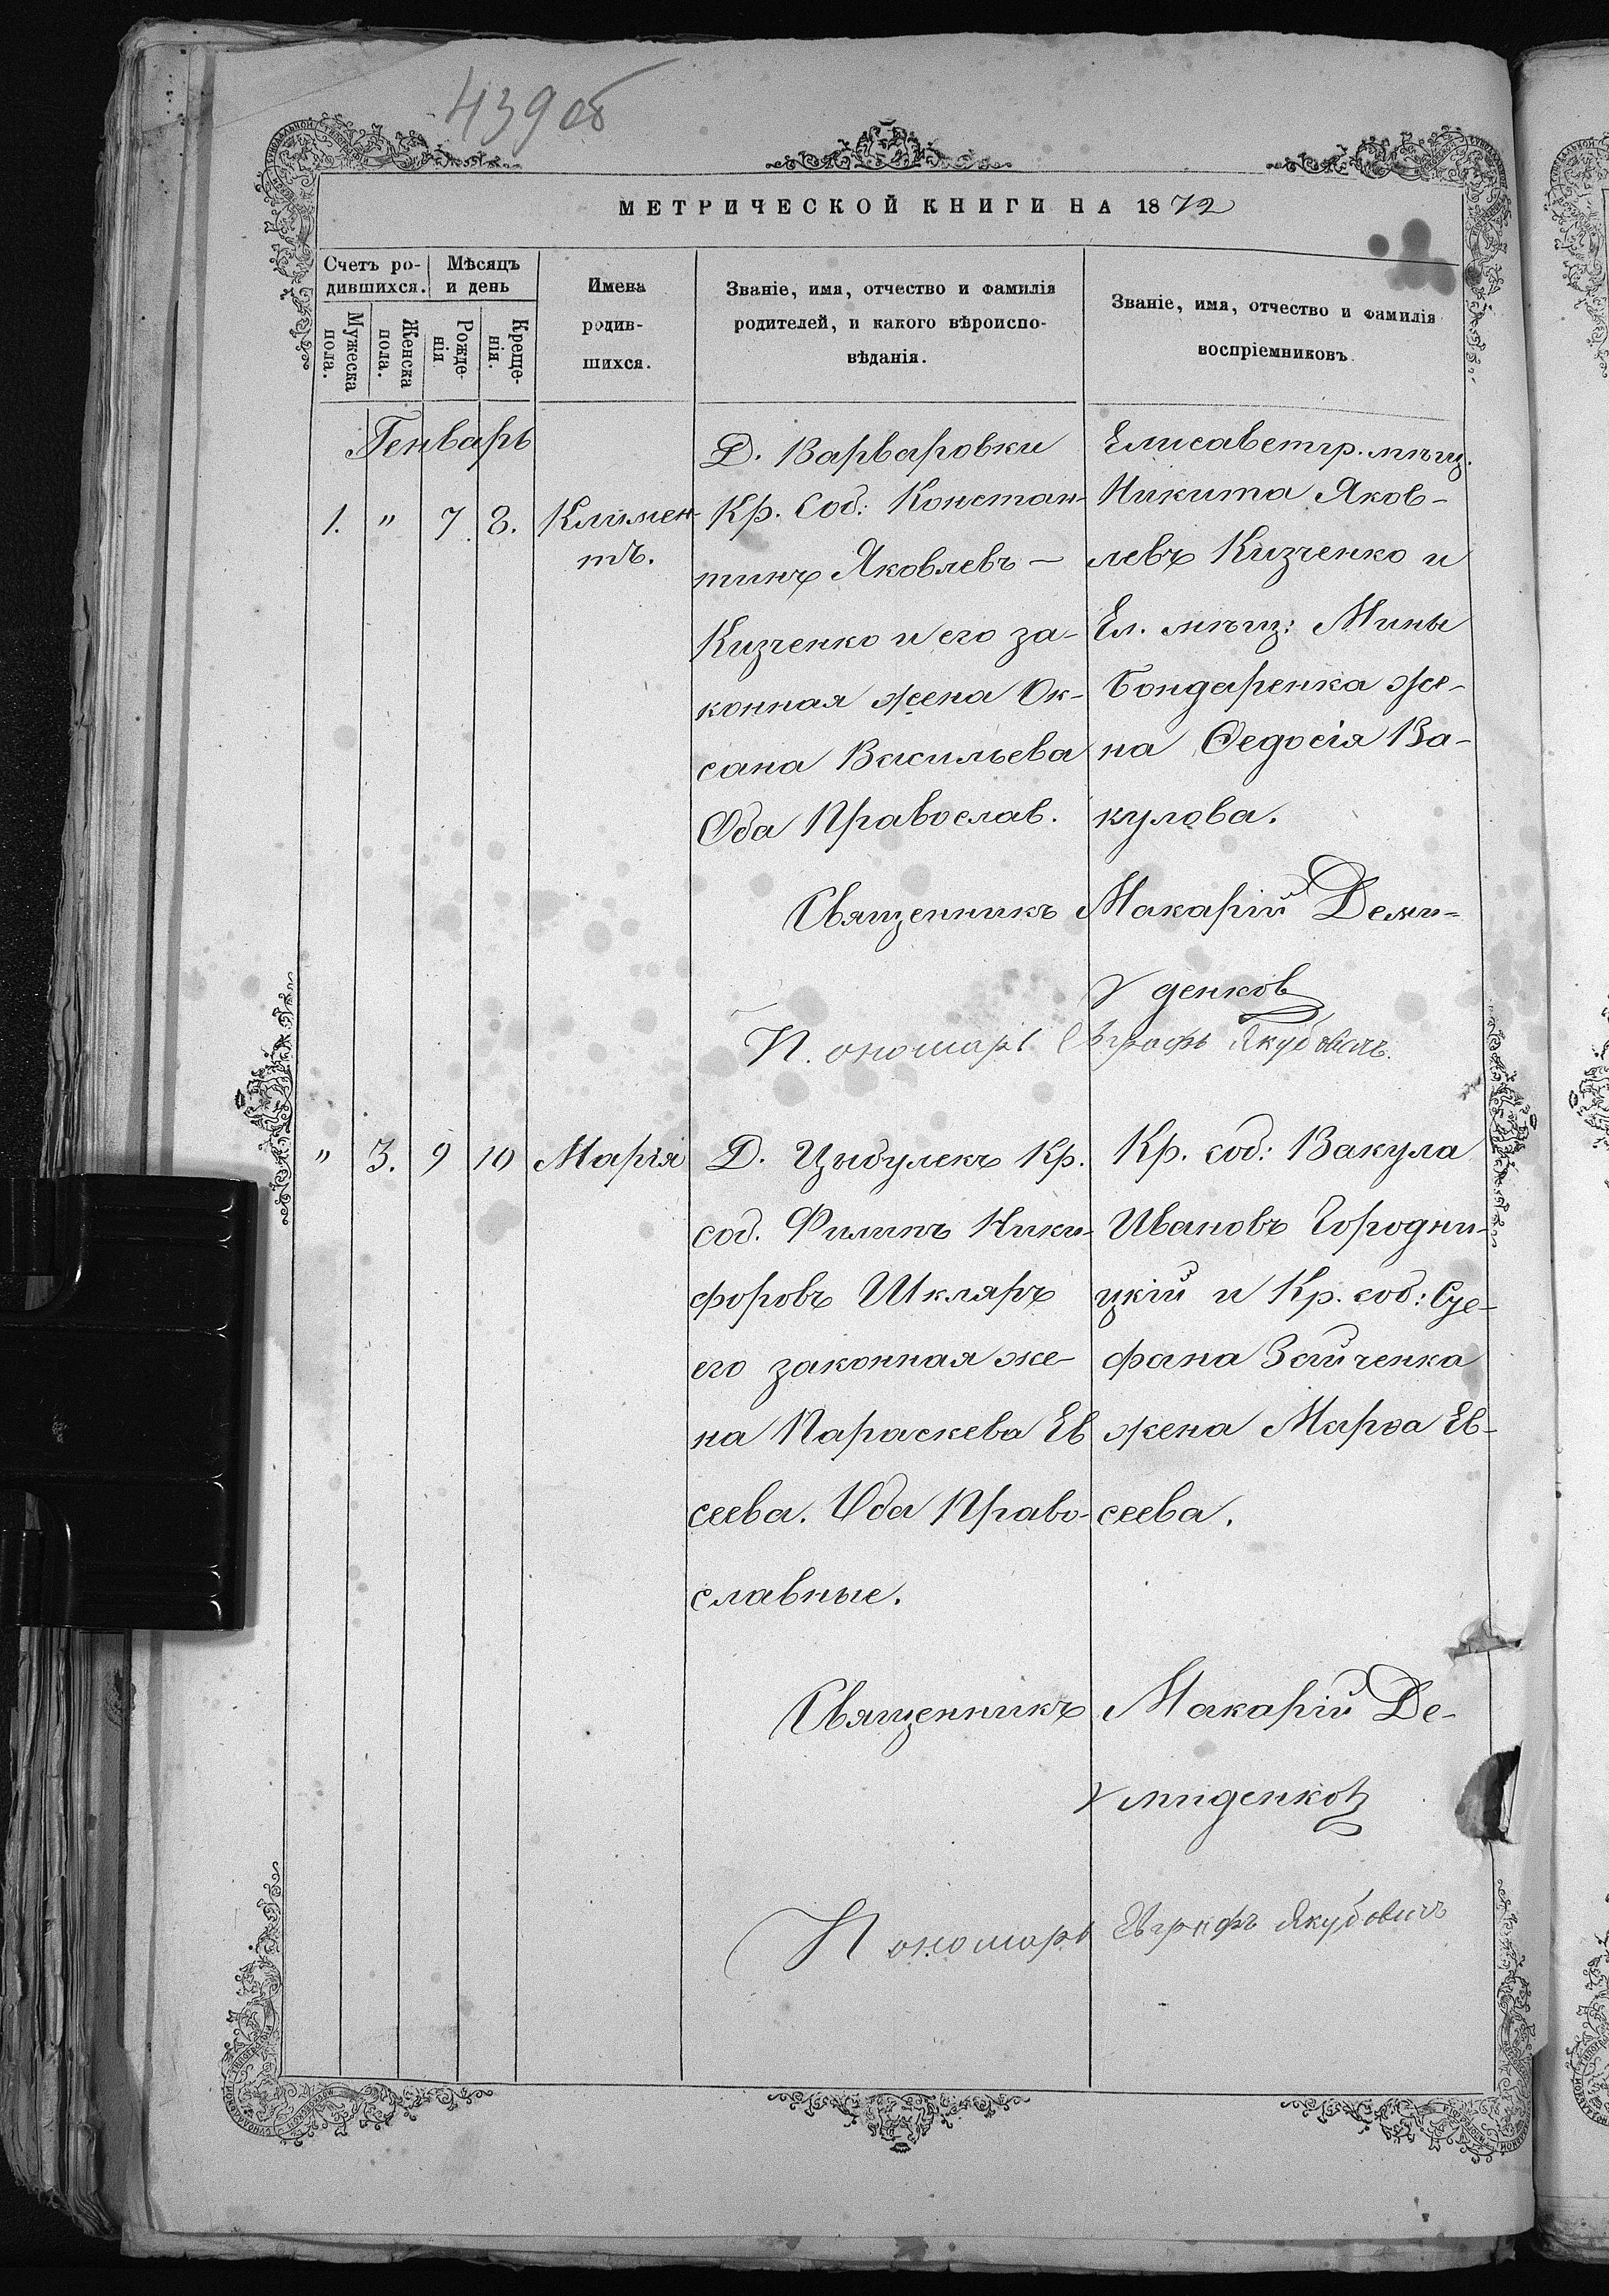 439 об
МЕТРИЧЕСКОЙ КНИГИ НА 1872
Счетъ ро-
дившихся.
Мѣсяцъ
и день
Мужеска
пола.
Женска
пола.
Рожде-
нія
Креще-
нія.
Имена
родив-
шихся.
Званіе, имя, отчество и фамилія
родителей, и какого вѣроиспо-
вѣданія.
Званіе, имя, отчество и фамилія
воспріемниковъ
Генварь
1. " 7 8.
Климен-
тъ.
Д. Варваровки
Кр. Соб: Констан-
тинъ Яковлевъ —
Кизченко и его за-
конная жена Ок-
сана Васильева
Оба Православ.
Елисаветгр. мѣщ.
Никита Яков-
левъ Кизченко и
Ел. мѣщ: Мины
Бондаренка же-
на Ѳедосія Ва-
кулова.
Священникъ Макарій Деми-
денков
Пономарь Евграфъ Якубовичъ.
" 3. 9 10
Марія
Д. Цыбулекъ Кр.
соб. Филипъ Ники-
форовъ Шкляръ
его законная же-
на Параскева Ев
сеева. Оба Право-
славные.
Кр. соб: Вакула
Ивановъ Городни-
цкій и Кр. соб:
фана Зайченка
жена Марѳа Ев-
сеева.
Священникъ Макарій Де-
миденков
Пономарь Евграфъ Якубовичъ